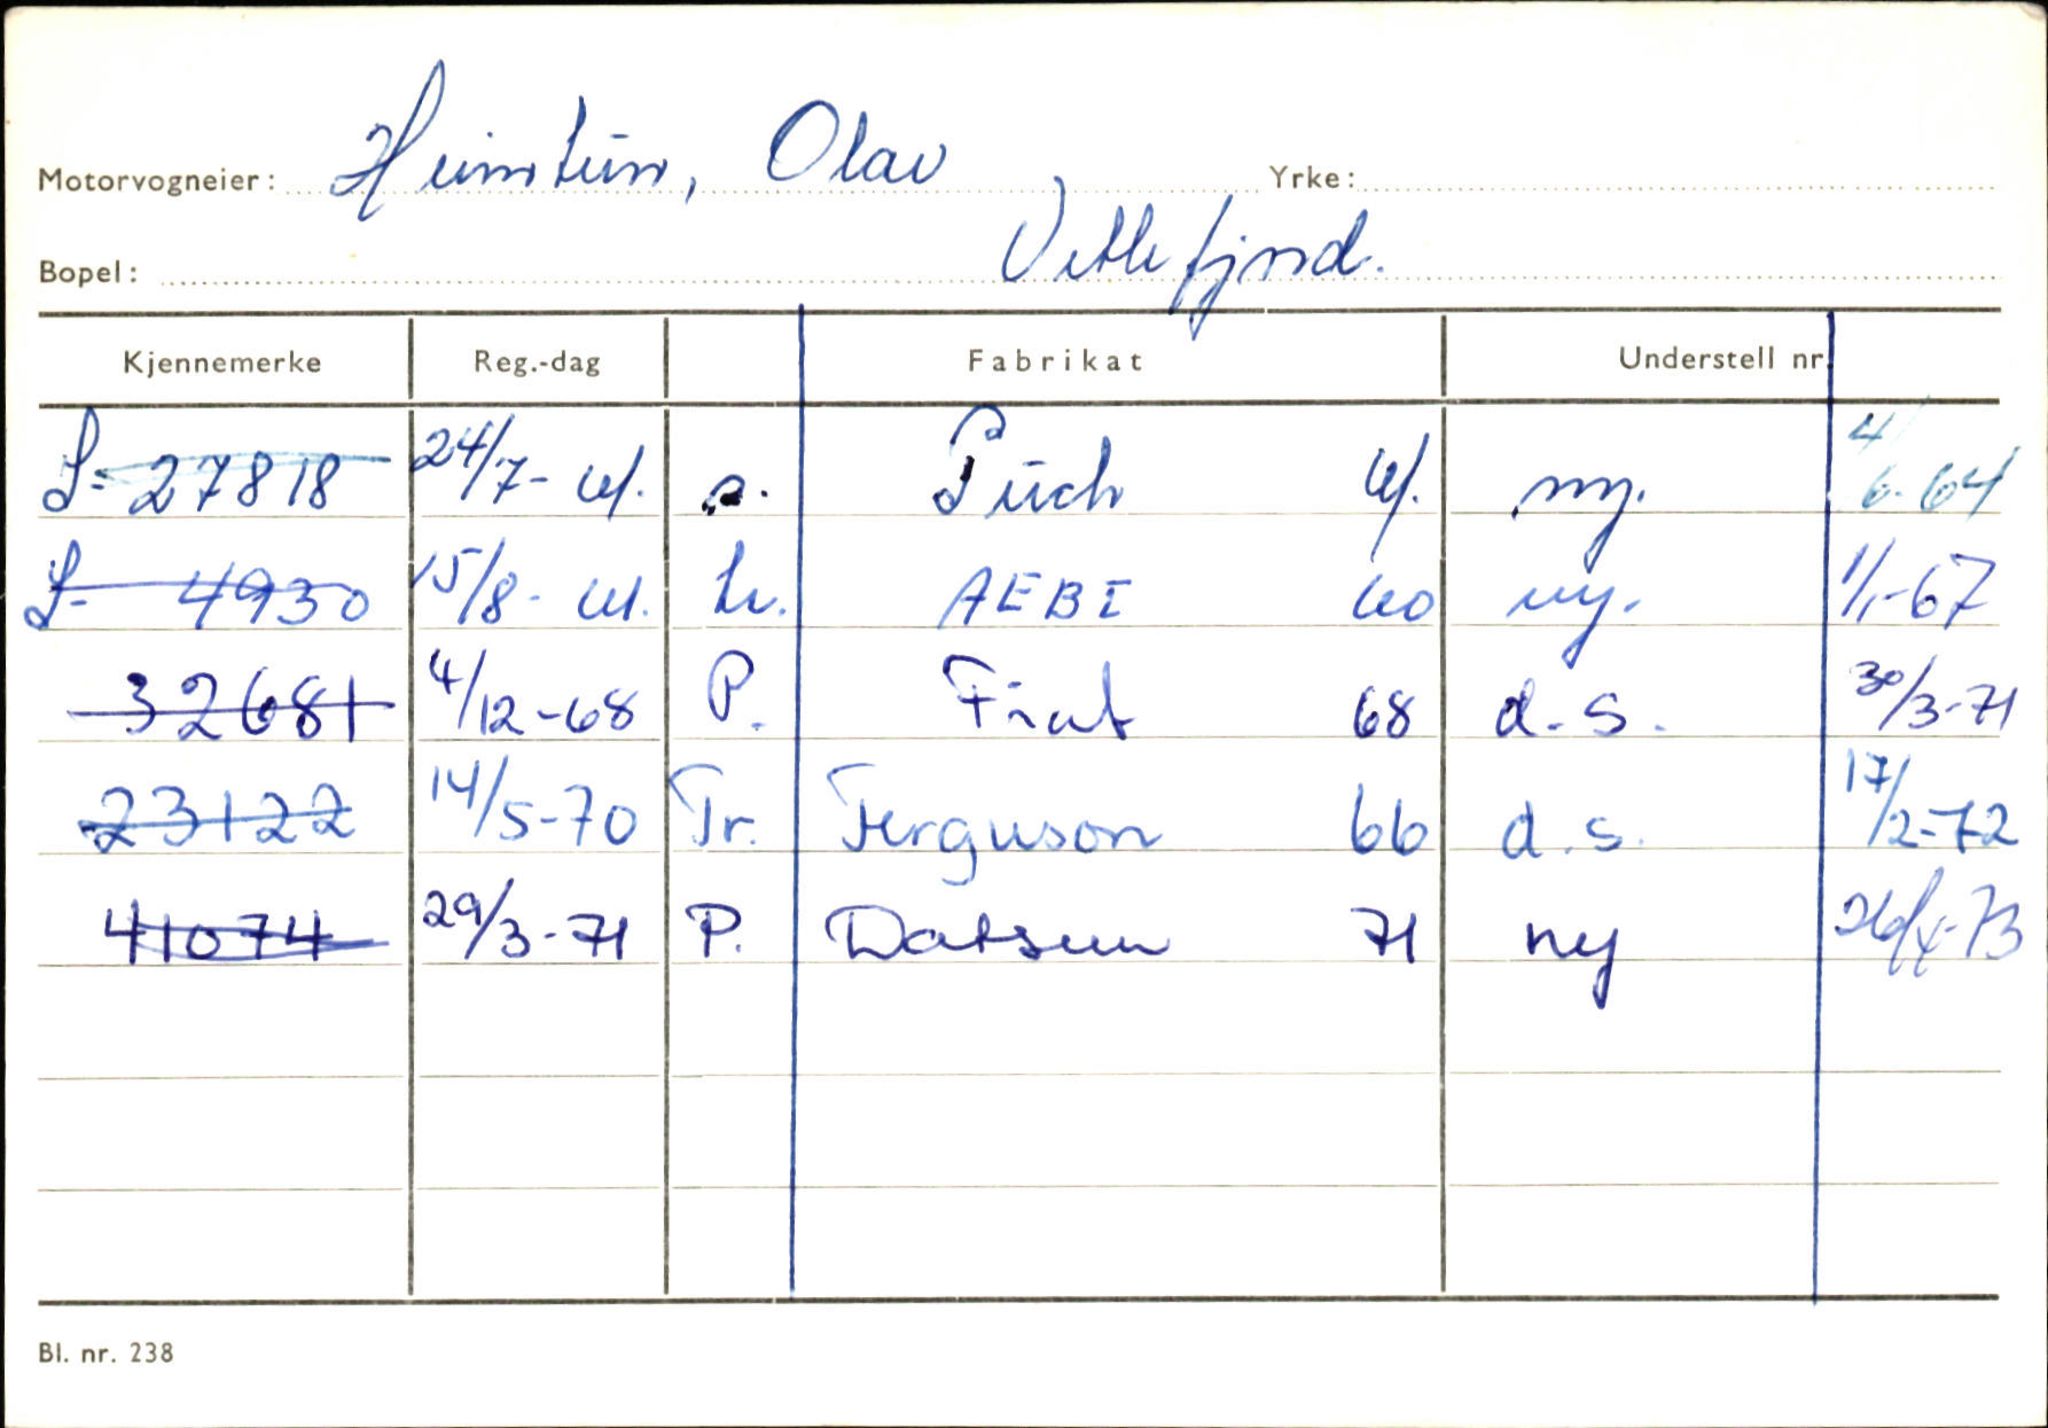 Motorvogneier: Heimtun, Olav Yrke:
Bopel: Vetlefjord.
Kjennemerke Reg.-dag Fabrikat Understell nr.
S-27818 24/7-61. s. Puch 61. ny. 4/6-64
S-4930 15/8-61. Lv. AEBI 60 ny. 1/1-67
32681 4/12-68 P. Fiat 68 d.s. 30/3-71
23122 14/5-70 Tr. Ferguson 66 d.s. 17/2-72
41074 29/3-71 P. Datsun 71 ny 26/4-73
Bl. nr. 238